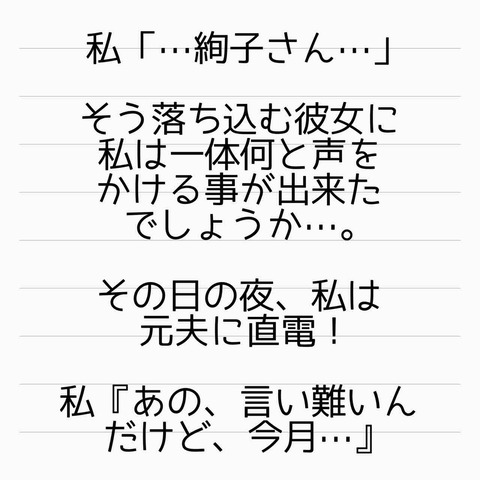 私「…絢子さん…」
そう落ち込む彼女に
私は一体何と声を
かける事が出来た
でしょうか…。
その日の夜、私は
元夫に直電！
私『あの、言い難いん
だけど、今月…』